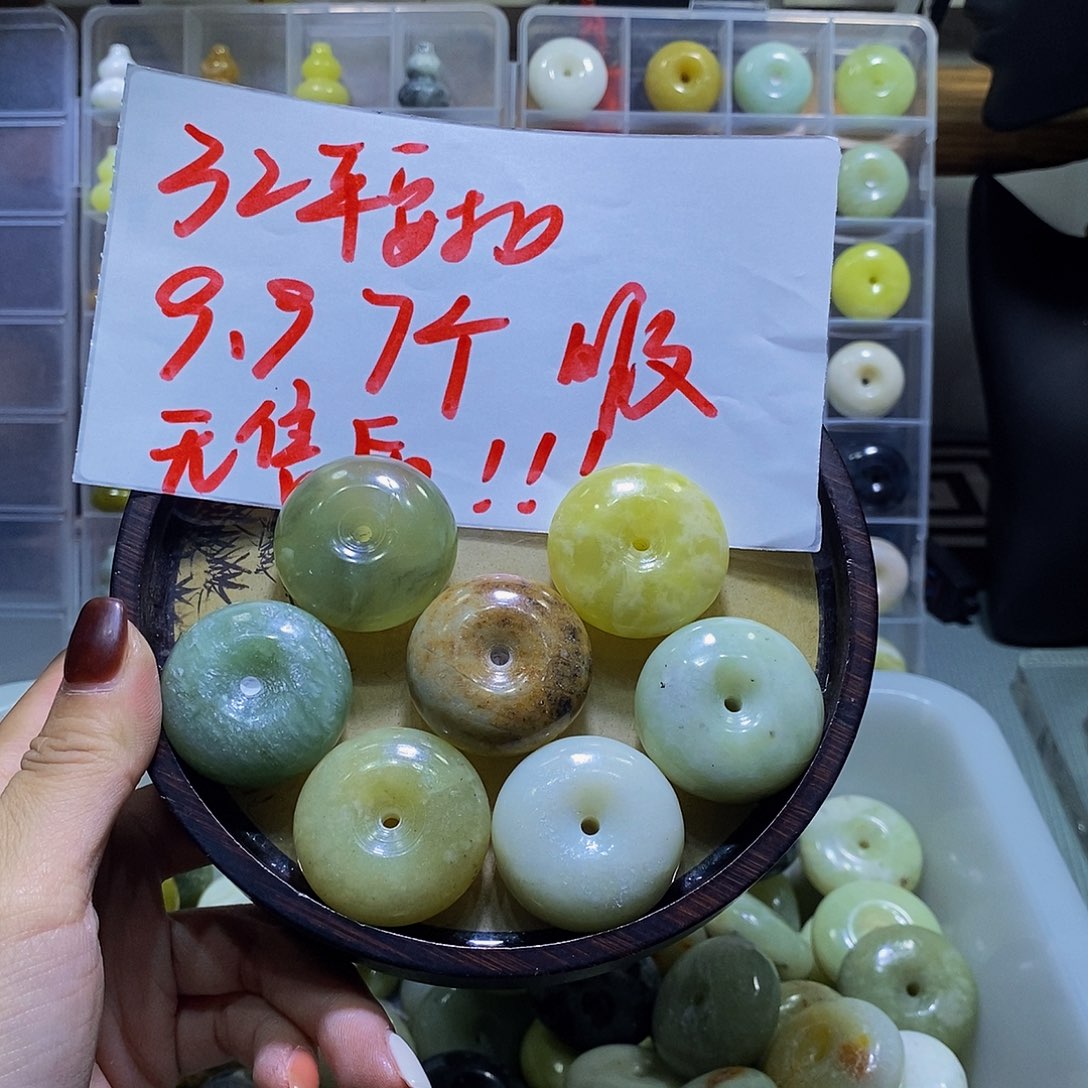 32平安扣
9.9 7个 吸
无售后!!!